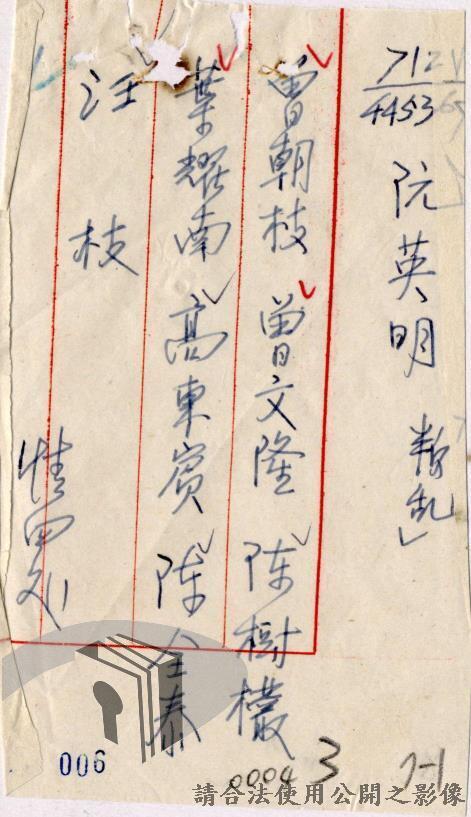 712
4453
阮英明 叛乱」
曾朝枝 曾文隆 陈樹欉
葉耀南 高東賓 陈全泰
汪 枝
情四
006
0004
3
7-1
請合法使用公開之影像